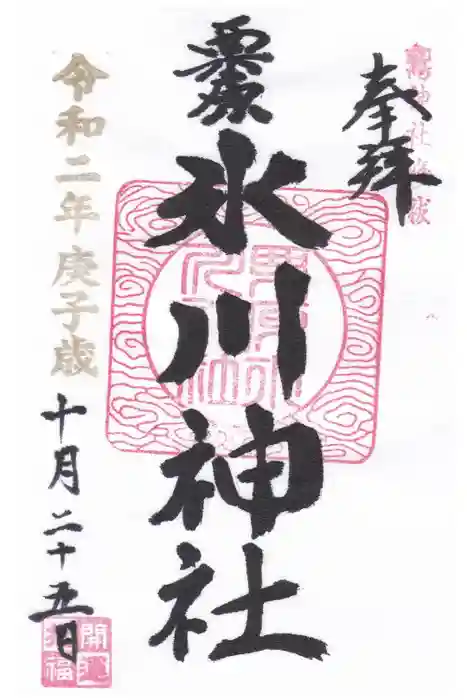 奉拝
氷川神社
令和二年庚子歳
十月二十五日
開運
招福